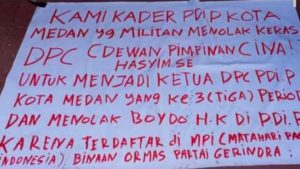 KAMI KADER PDIP KOTA
MEDAN yg MILITAN MENOLAK KERAS
DPC (DEWAN PIMPINAN CINA!
HASYIM.SE
UNTUK MENJADI KETUA DPC PDI.P
KOTA MEDAN YANG KE 3 (TIGA) PERIOD
DAN MENOLAK BOYDO H.K DI PDI.P
KARENA TERDAFTAR di MPI (MATAHARI PA
INDONESIA) BINAAN ORMAS PARTAI GERINDRA!